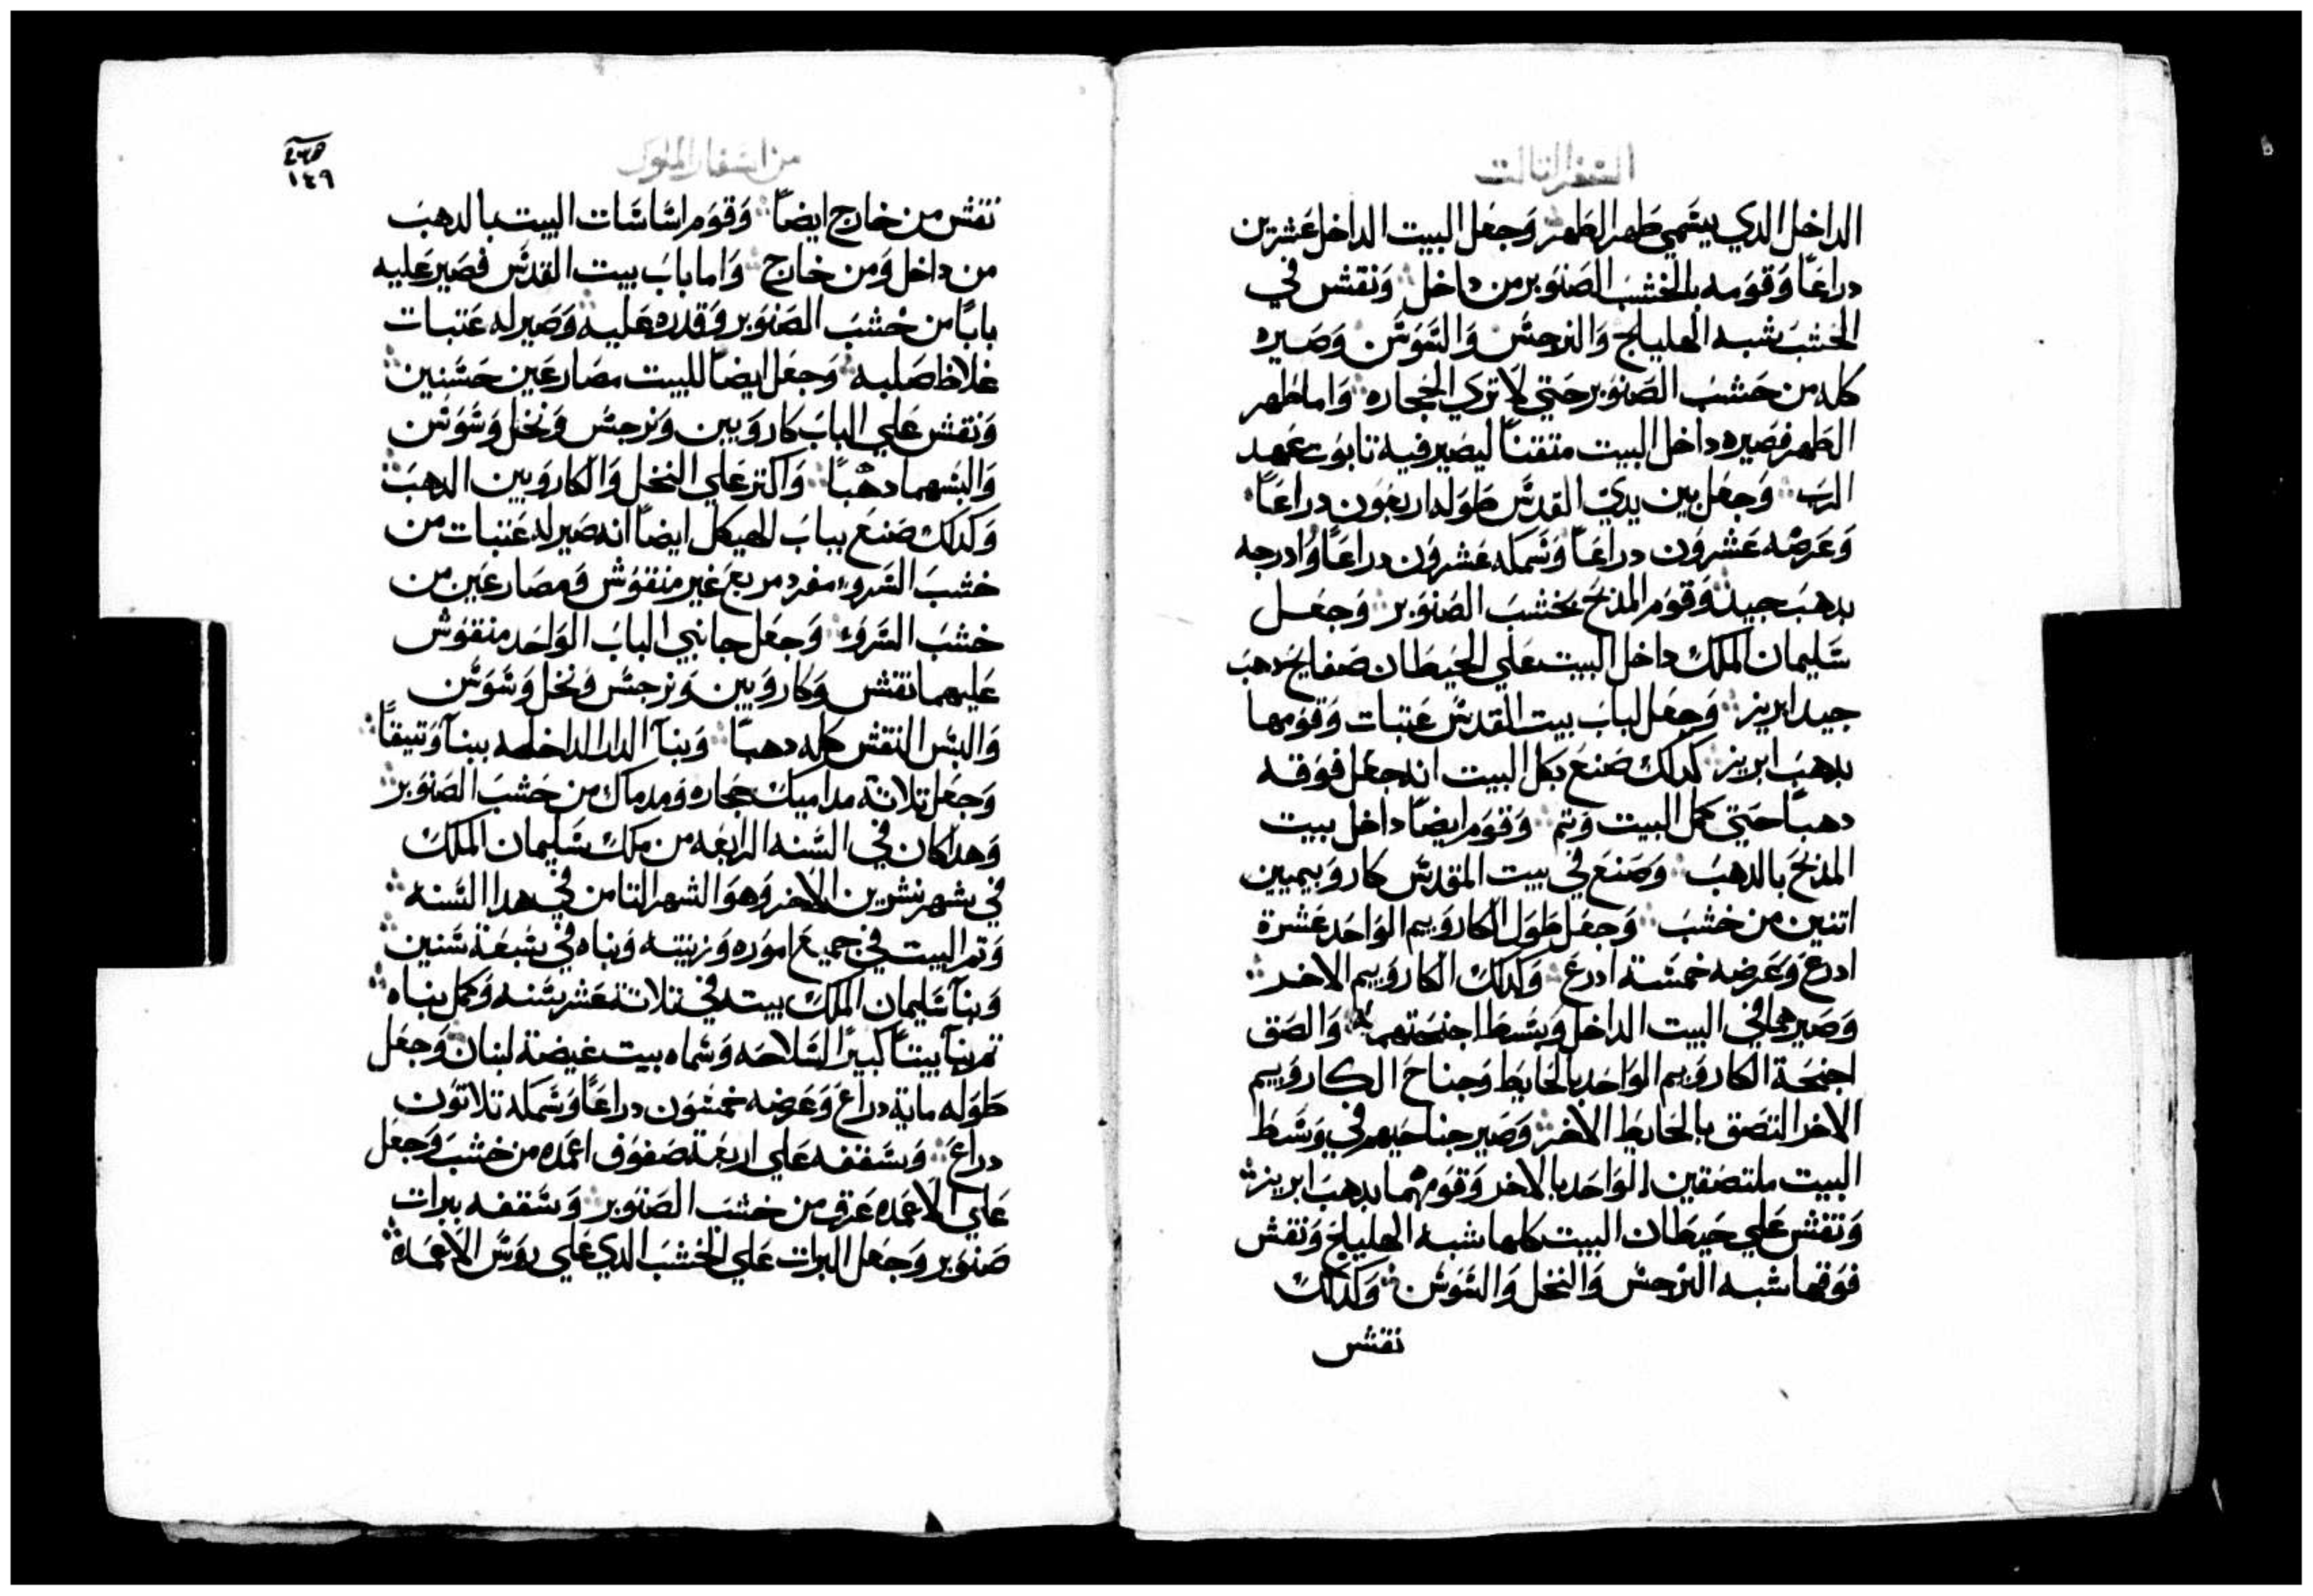 السفر التالت
الداخل الدي يسمي طهر الطهر وجعل البيت الداخل عشرين
دراعًا وقومه بالخشب الصنوبر من داخل ونقش في
الخشب شبه الهليلج والنرجس والسوسن وصيره
كله من خشب الصنوبر حتي لا تري الحجاره واما طهر
الطهر فصيره داخل البيت متقنًا ليصير فيه تابوت عهد
الرب وجعل بين يدي القدس طوله اربعون دراعًا
وعرضه عشرون دراعًا وسمكه عشرون دراعًا وادرجه
بدهب جيد وقوم المدبح بخشب الصنوبر وجعل
سليمان الملك داخل البيت علي الحيطان صفايح دهب
جيد ابريز وجعل لباب بيت القدس عتبات وقومها
بدهب ابريز كدلك صنع بكل البيت انه جعل فوقه
دهبًا حتي كمل البيت وتم وقوم ايضًا داخل بيت
المدبح بالدهب وصنع في بيت المقدس كاروبيميين
اتنين من خشب وجعل طول الكاروبيم الواحد عشرة
ادرع وعرضه خمسة ادرع وكدلك الكاروبيم الاخر
وصيرهما في البيت الداخل وبسط اجنحتهما والصق
اجنحة الكاروبيم الواحد بالحايط وجناح الكاروبيم
الاخر التصق بالحايط الاخر وصير جناحيهم في وسط
البيت ملتصقين الواحد بالاخر وقومهما بدهب ابريز
ونقش علي حيطان البيت كلها شبه الهليلج ونقش
فوقها شبه النرجس والنخل والسوسن وكدلك
نقش
من اسفار الملوك
١٤٩
نقش من خارج ايضًا وقوم اساسات البيت بالدهب
من داخل ومن خارج واما باب بيت القدس فصير عليه
بابًا من خشب الصنوبر وقدره عليه وصير له عتبات
غلاظ صلبه وجعل ايضًا للبيت مصارعين حسنين
ونقش علي الباب كاروبين ونرجس ونخل وسوسن
والبسهما دهبًا واكتر علي النخل والكاروبين الدهب
وكدلك صنع بباب الهيكل ايضًا انه صير له عتبات من
خشب السرو مفرد مربع غير منقوش ومصارعين من
خشب السرو وجعل جانبي الباب الواحد منقوش
عليهما نقش وكاروبين ونرجس ونخل وسوسن
والبس النقش كله دهبًا وبنآ الدار الداخله ببنآ وتيقًا
وجعل تلاتة مداميك حجاره ومدماك من خشب الصنوبر
وهدا كان في السنه الرابعه من ملك سليمان الملك
في شهر تشرين الاخر وهو الشهر التامن في هدا السنه
وتم البيت في جميع اموره وزينته وبناه في سبعة سنين
وبنآ سليمان الملك بيته في تلاتة عشر سنه وكمل بناه
تم بنآ بيتًا كبيرًا لسلاحه وسماه بيت غيضة لبنان وجعل
طوله ماية دراع وعرضه خمسون دراعًا وسمكه تلاتون
دراع وسقفه علي اربعة صفوف اعمده من خشب وجعل
علي الاعمده عرق من خشب الصنوبر وسقفه ببرات
صنوبر وجعل البرات علي الخشب الدي علي روس الاعمده